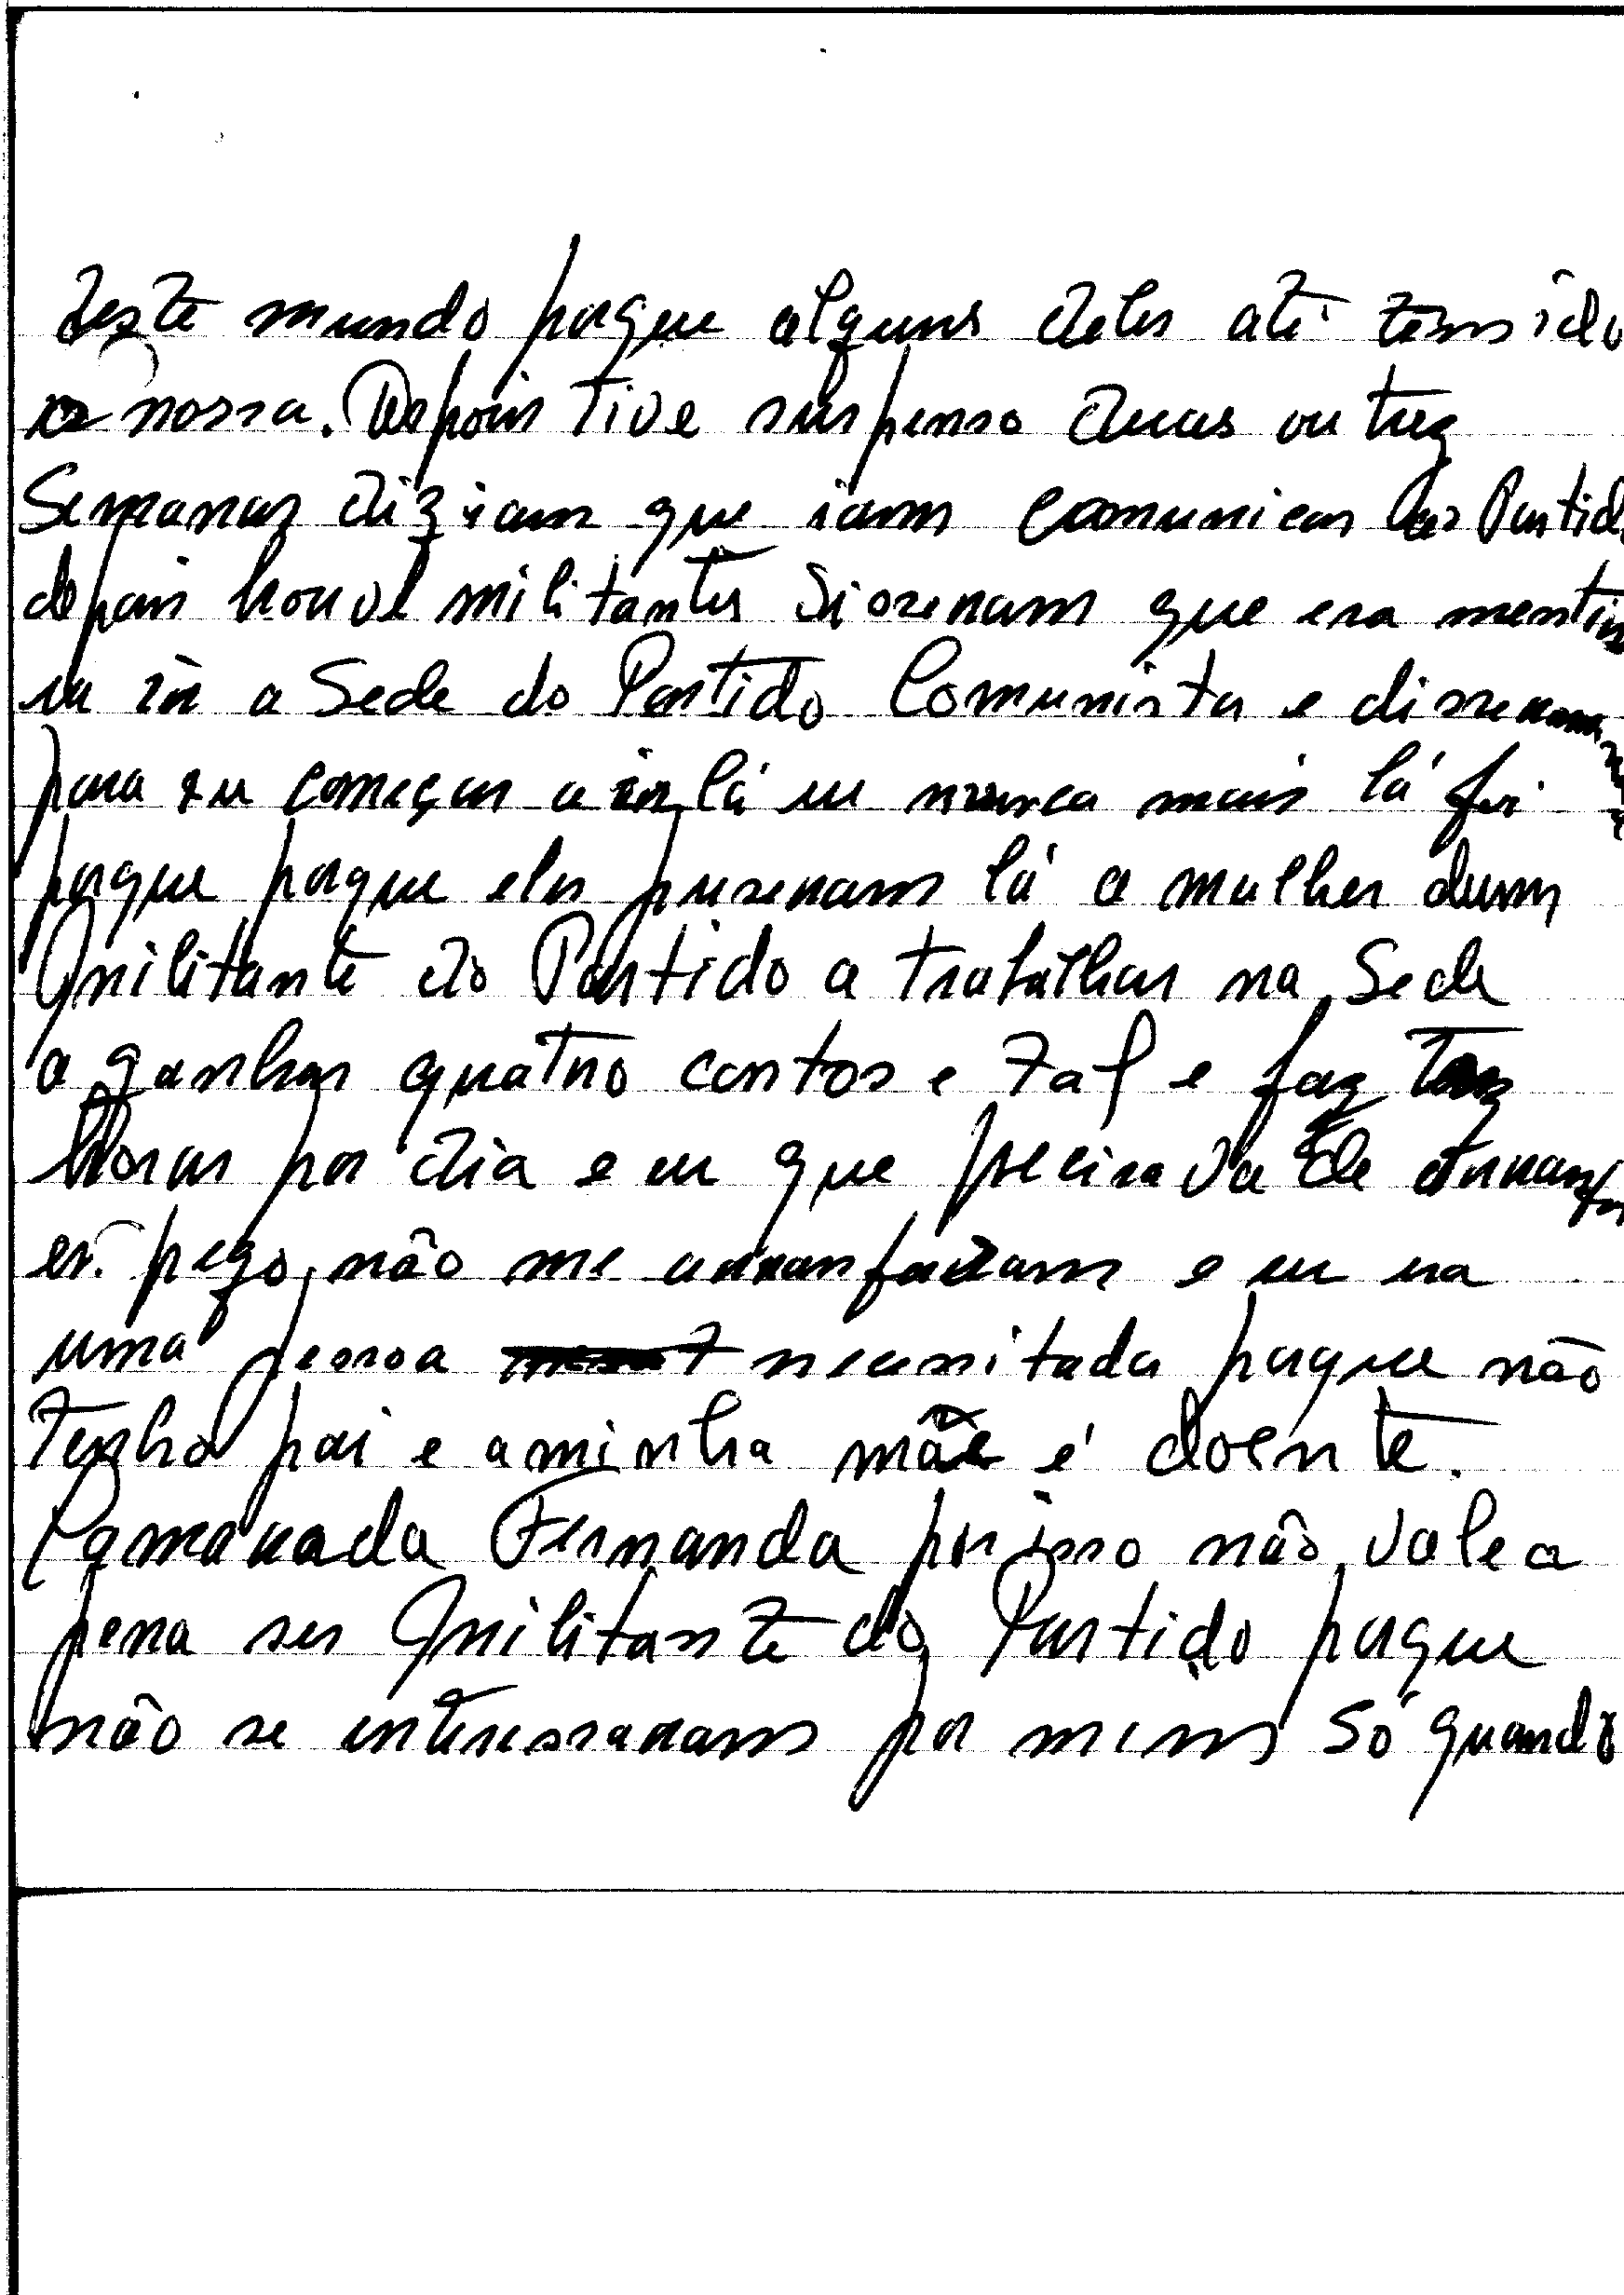 deste mundo porque alguns deles até tem ido
a nossa. Depois tive suspensa duas ou trez
Semanas diziam que iam comunicar ao Partido
depois houve militantes que era mentira
eu ir a Sede do Partido Comunista e disseram
para eu começar a ir lá eu nunca mais lá fui
porque porque eles puseram lá a mulher dum
Militante do Partido a trabalhar na Sede
a ganhar quatro contos e tal e faz
horas por dia e eu que precisava de
em.pego não me e eu era
uma pessoa necessitada porque não
tenho pai e a minha mãe é doente.
Camarada Fernanda por isso não vale a
pena ser Militante do Partido porque
não se interessaram por mim só quando